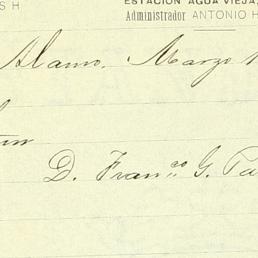 S H ESTACIÓN AGUA VIEJA,
Administrador ANTONIO H
Alamo, Marzo 1
D. Fran.co G. Pa